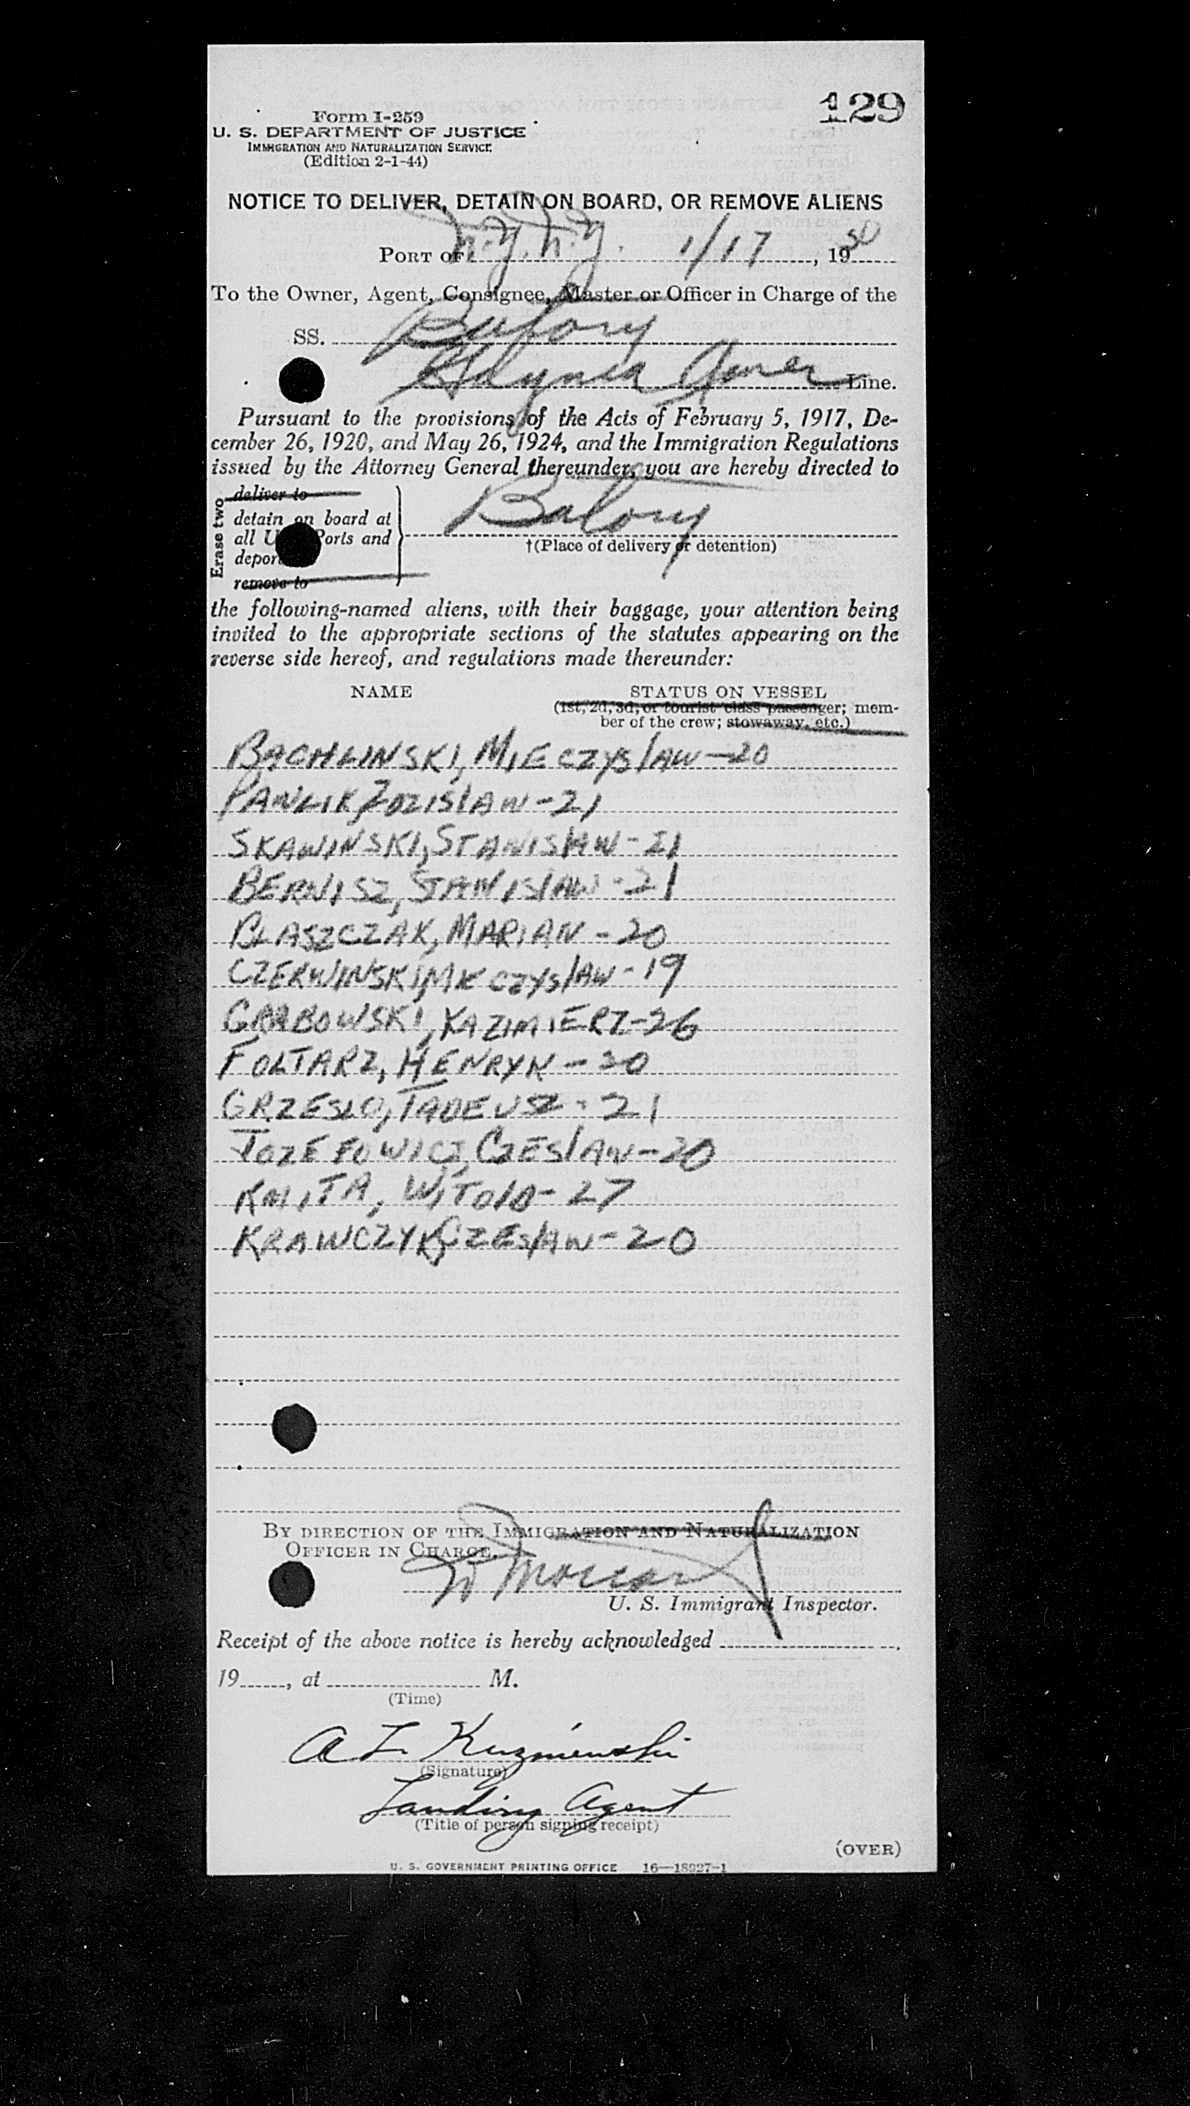 129
Form I-259
U. S. DEPARTMENT OF JUSTICE
IMMIGRATION AND NATURALIZATION SERVICE
(Edition 2-1-44)
NOTICE TO DELIVER, DETAIN ON BOARD, OR REMOVE ALIENS
PORT OF N.Y. N.Y. 1/17, 1950
To the Owner, Agent, Consignee, Master or Officer in Charge of the
SS. Batory
Gdynia Amer Line.
Pursuant to the provisions of the Acts of February 5, 1917, De-
cember 26, 1920, and May 26, 1924, and the Immigration Regulations
issued by the Attorney General thereunder, you are hereby directed to
Erase two
deliver to
detain on board at
all U Ports and
depor
remove to
Batory
†(Place of delivery or detention)
the following-named aliens, with their baggage, your attention being
invited to the appropriate sections of the statutes appearing on the
reverse side hereof, and regulations made thereunder:
NAME STATUS ON VESSEL
(1st, 2d, 3d, or tourist class passenger; mem-
ber of the crew; stowaway, etc.)
BACHLINSKI, MIECZYSlAW-20
PAWLIK, ZDZISlAW-21
SKAWINSKI, STANISlAW-21
BERNISZ, STANISlAW-21
BLASZCZAK, MARIAN-20
CZERWINSKI, MIECZYSlAW-19
GRABOWSKI, KAZIMIERZ-26
FOLTARZ, HENRYK-20
GRZESLO, TADEUSZ-21
JOZEFOWICZ, CZESlAW-20
KMITA, WITOlD-27
KRAWCZYK, CZESlAW-20
BY DIRECTION OF THE IMMIGRATION AND NATURALIZATION
OFFICER IN CHARGE.
U. S. Immigrant Inspector.
Receipt of the above notice is hereby acknowledged
19, at M.
(Time)
A L Kuzmienski
(Signature)
Landing Agent
(Title of person signing receipt)
(OVER)
U. S. GOVERNMENT PRINTING OFFICE 16—18927-1